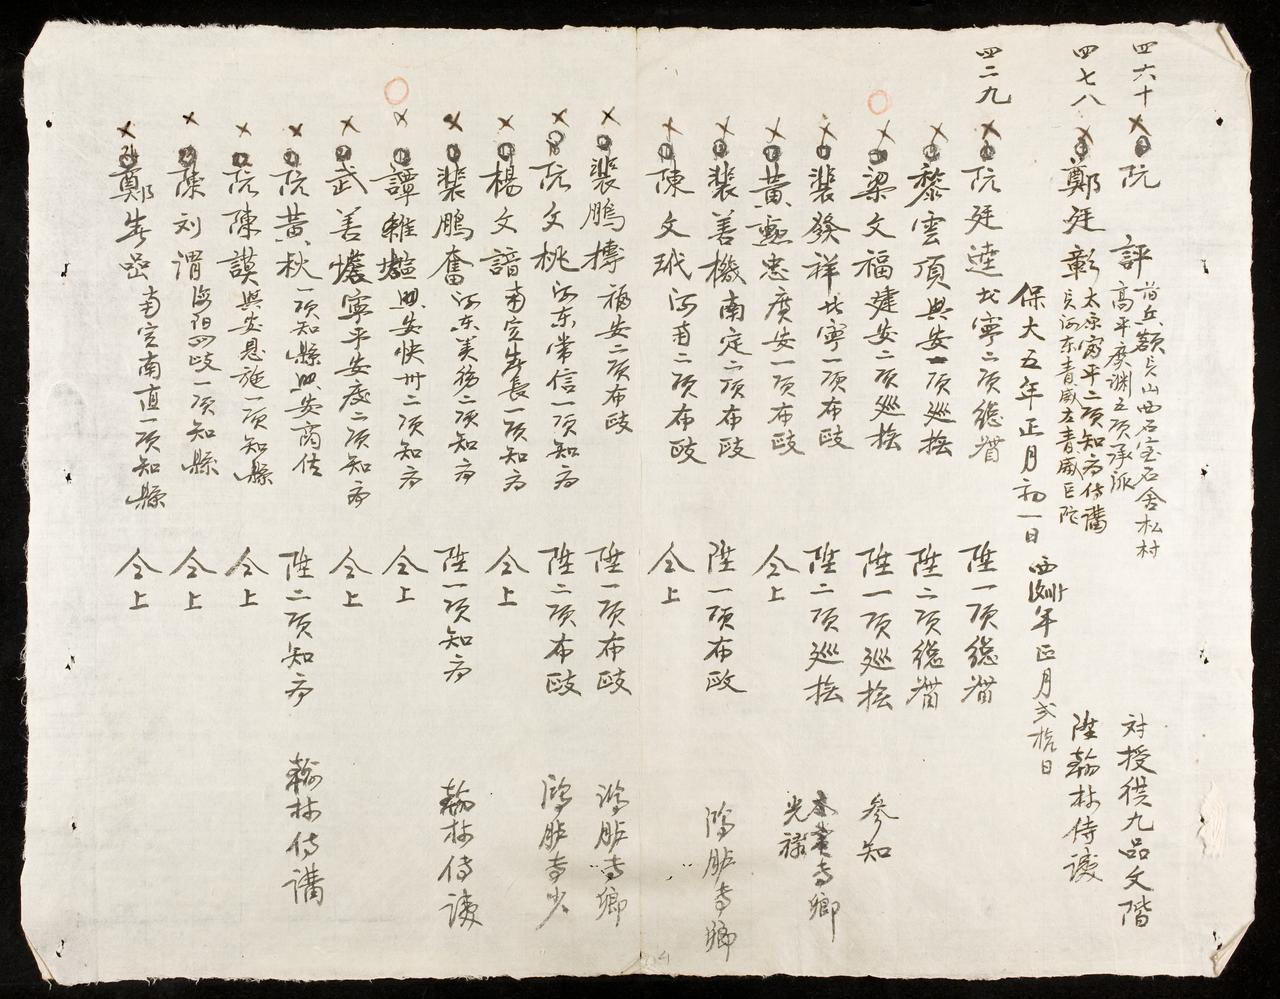 四六十 阮 評 高平廣淵五項承派 対授從九品文階
四七八 鄭廷彰 太原富平二項知府侍講 陞翰林侍讀
保大五年正月初一日 西 年正月弍拾日
四二九 阮廷達 北寧二項總督 陞一項總督
黎雲項 興安一項巡撫 陞二項總督
梁文福 建安二項巡撫 陞一項巡撫 參知
裴發祥 北寧一項布政 陞二項巡撫 寺卿
光祿
黃 忠 廣安一項布政 仝上
裴善機 南定二項布政 陞一項布政 鴻臚寺卿
陳文玳 河南二項布政 仝上
裴鵬摶 福安二項布政 陞一項布政 鴻臚寺卿
阮文桃 河东常信一項知府 陞二項布政 鴻臚寺少
楊文諳 南定春長一項知府 仝上
裴鵬奮 河东美 二項知府 陞一項知府 翰林侍讀
譚 興安快州二項知府 仝上
武善 寧平安慶二項知府 仝上
阮黃秋 一項知縣興安 陞二項知府 翰林侍講
阮陳謨 興安恩施一項知縣 仝上
陳刘渭 海阳四岐一項知縣 仝上
鄭春 南定南直一項知縣 仝上